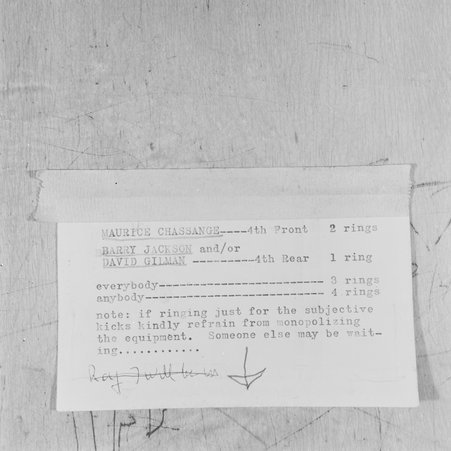 MAURICE CHASSANGE----4th Front 2 rings
BARRY JACKSON and/or
DAVID GILMAN ----------4th Rear 1 ring
everybody-------------------------- 3 rings
anybody---------------------------- 4 rings
note: if ringing just for the subjective
kicks kindly refrain from monopolizing
the equipment. Someone else may be wait-
ing............
Ray